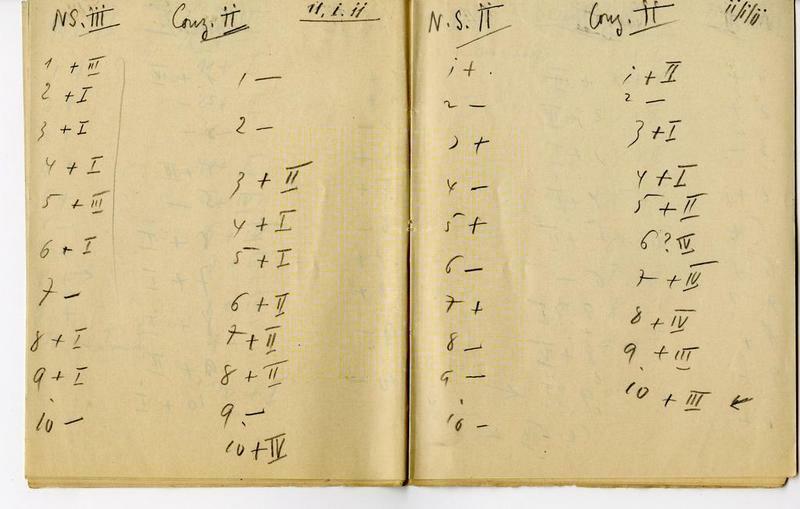 NS. iii
1 + III
2 + I
3 + I
4 + I
5 + III
6 + I
7 —
8 + I
9 + I
10 —
Conz. ii
1 —
2 —
3 + II
4 + I
5 + I
6 + II
7 + II
8 + II
9 —
10 + IV
ii, i. ii
N. S. II
1 +
2 —
3 +
4 —
5 +
6 —
7 +
8 —
9 —
10 —
Conz. II
1 + II
2 —
3 + I
4 + I
5 + II
6 ? IV
7 + IV
8 + IV
9 + III
10 + III
ii/i/ii